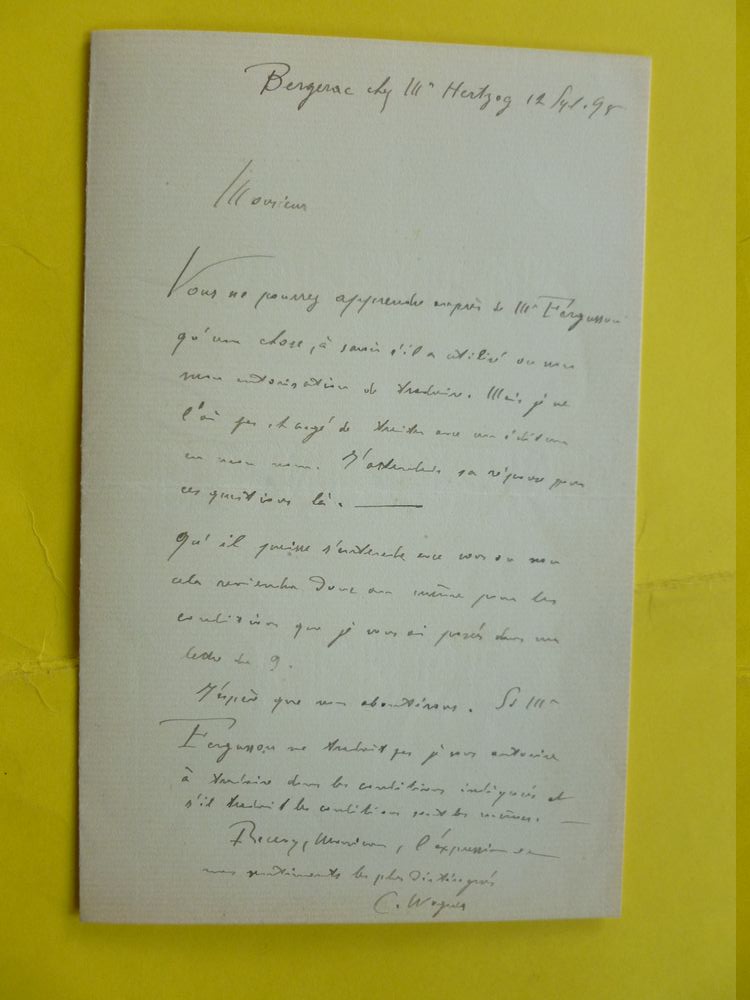 Bergerac chez Mr Hertzog 12 Sept. 98
Monsieur
Vous ne pourrez apprendre auprès de Mr Fergusson
qu'une chose, à savoir s'il a utilisé ou non
mon autorisation de traduire. Mais je ne
l'ai pas chargé de traiter avec un éditeur
en mon nom. J'attendrai sa réponse pour
ces questions là. —
Qu'il puisse s'entendre avec vous ou non
cela reviendra donc au même pour les
conditions que je vous ai posées dans ma
lettre du 9.
J'espère que nous aboutirons. Si Mr
Fergusson ne traduit pas je vous autorise
à traduire dans les conditions indiquées et
s'il traduit les conditions sont les mêmes. —
Recevez, Monsieur, l'expression de
mes sentiments les plus distingués
C. Wagner